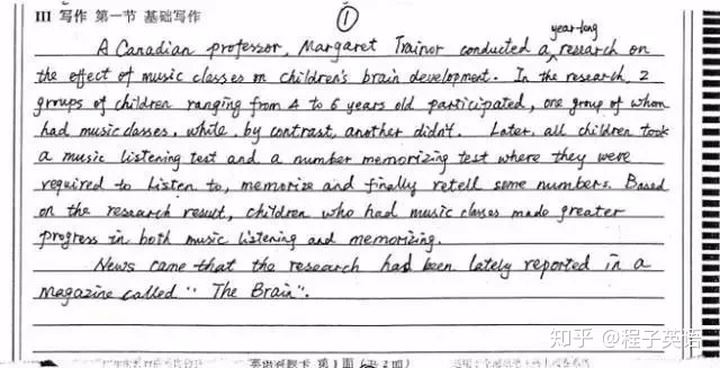 III 写作 第一节 基础写作
①
year-long
A Canadian professor, Margaret Trainor conducted a research on
the effect of music classes on children's brain development. In the research, 2
groups of children ranging from 4 to 6 years old participated, one group of whom
had music classes, while, by contrast, another didn't. Later, all children took
a music listening test and a number memorizing test where they were
required to listen to, memorize and finally retell some numbers. Based
on the research result, children who had music classes made greater
progress in both music listening and memorizing.
News came that the research had been lately reported in a
magazine called " The Brain".
知乎 @程子英语